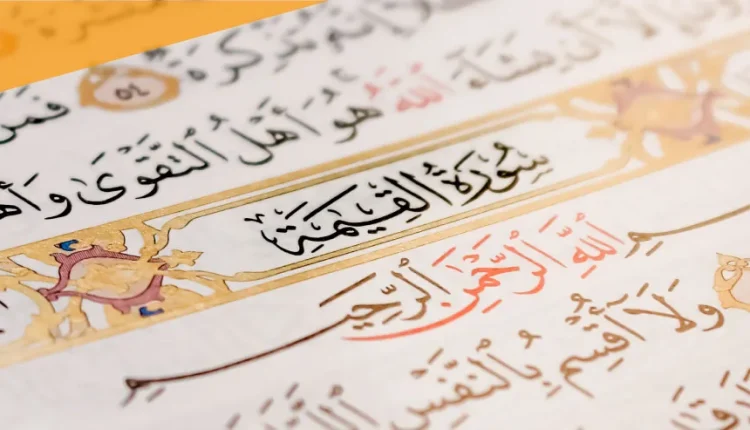 إِنَّهُۥ تَذْكِرَةٌ ٥٤ فَمَن
إِلَّآ أَن يَشَآءَ ٱللَّهُ هُوَ أَهْلُ ٱلتَّقْوَىٰ وَأَهْ
سُورَةُ ٱلْقِيَٰمَةِ
ٱللَّهِ ٱلرَّحْمَٰنِ ٱلرَّحِيمِ
وَلَآ أُقْسِمُ بِٱلنَّفْسِ